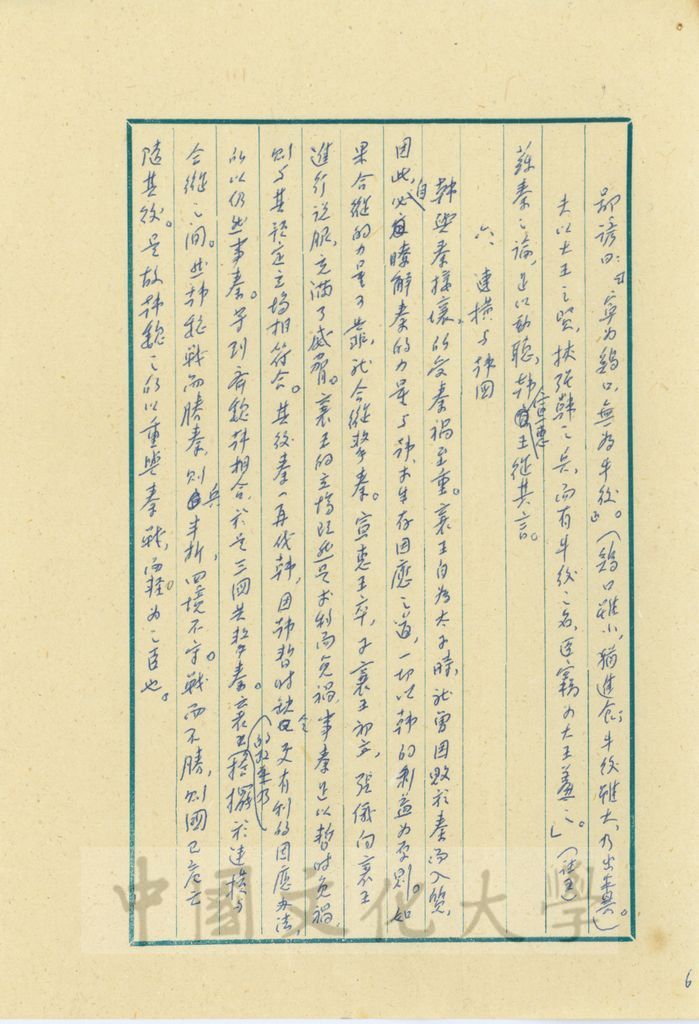 鄙諺曰：『寧為鷄口，無為牛後』。（鷄口雖小，猶進食；牛後雖大，乃出糞。）
夫以大王之賢，挾強韓之兵，而有牛後之名，臣竊為大王羞之。」（註五）
蘇秦之論，足以動聽，韓宣惠王從其言。
六、連橫与韓国
韓與秦接壤，所受秦禍至重。襄王自為太子時，就曾因敗於秦而入質，
因此，必自瞭解秦的力量与韓求生存因應之道，一切以韓的利益为原則。如
果合縱的力量可靠，就合縱擊秦。宣惠王卒，子襄王初立，張儀向襄王
進行说服，充滿了威脅。襄王的立場既然是求利而免禍，事秦足以暫时免禍，
則与其设定立場相符合。其後秦一再伐韓，因韓暫时缺乏更有利的因應办法，
所以仍然事秦。等到齊魏韓相合，於是三國共擊秦。襄王搖擺於連橫与
合縱之间。然韓魏戰而勝秦，則兵半折，四境不守。戰而不勝，則國已危亡
隨其後。是故韓魏之所以重與秦戰，而輕为之臣也。
6
中國文化大學